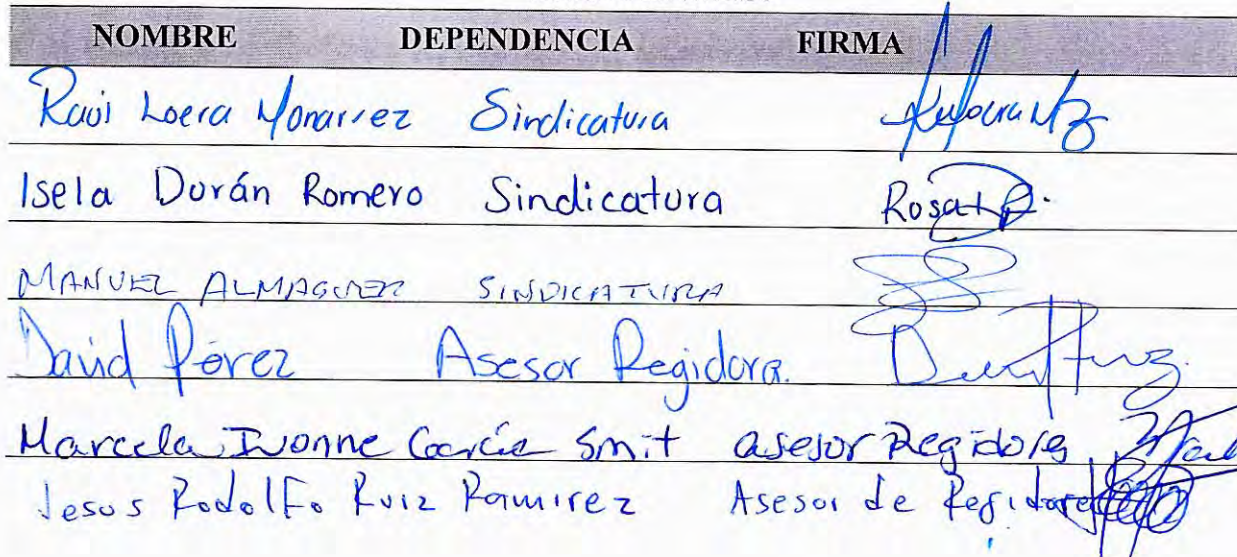 NOMBRE DEPENDENCIA FIRMA
Raúl Loera Monarrez Sindicatura
Isela Durán Romero Sindicatura Rosa
MANUEL ALMAGUER SINDICATURA
David Pérez Asesor Regidora.
Marcela Ivonne García Smit asesor Regidora
Jesus Rodolfo Ruiz Ramirez Asesor de Regidores